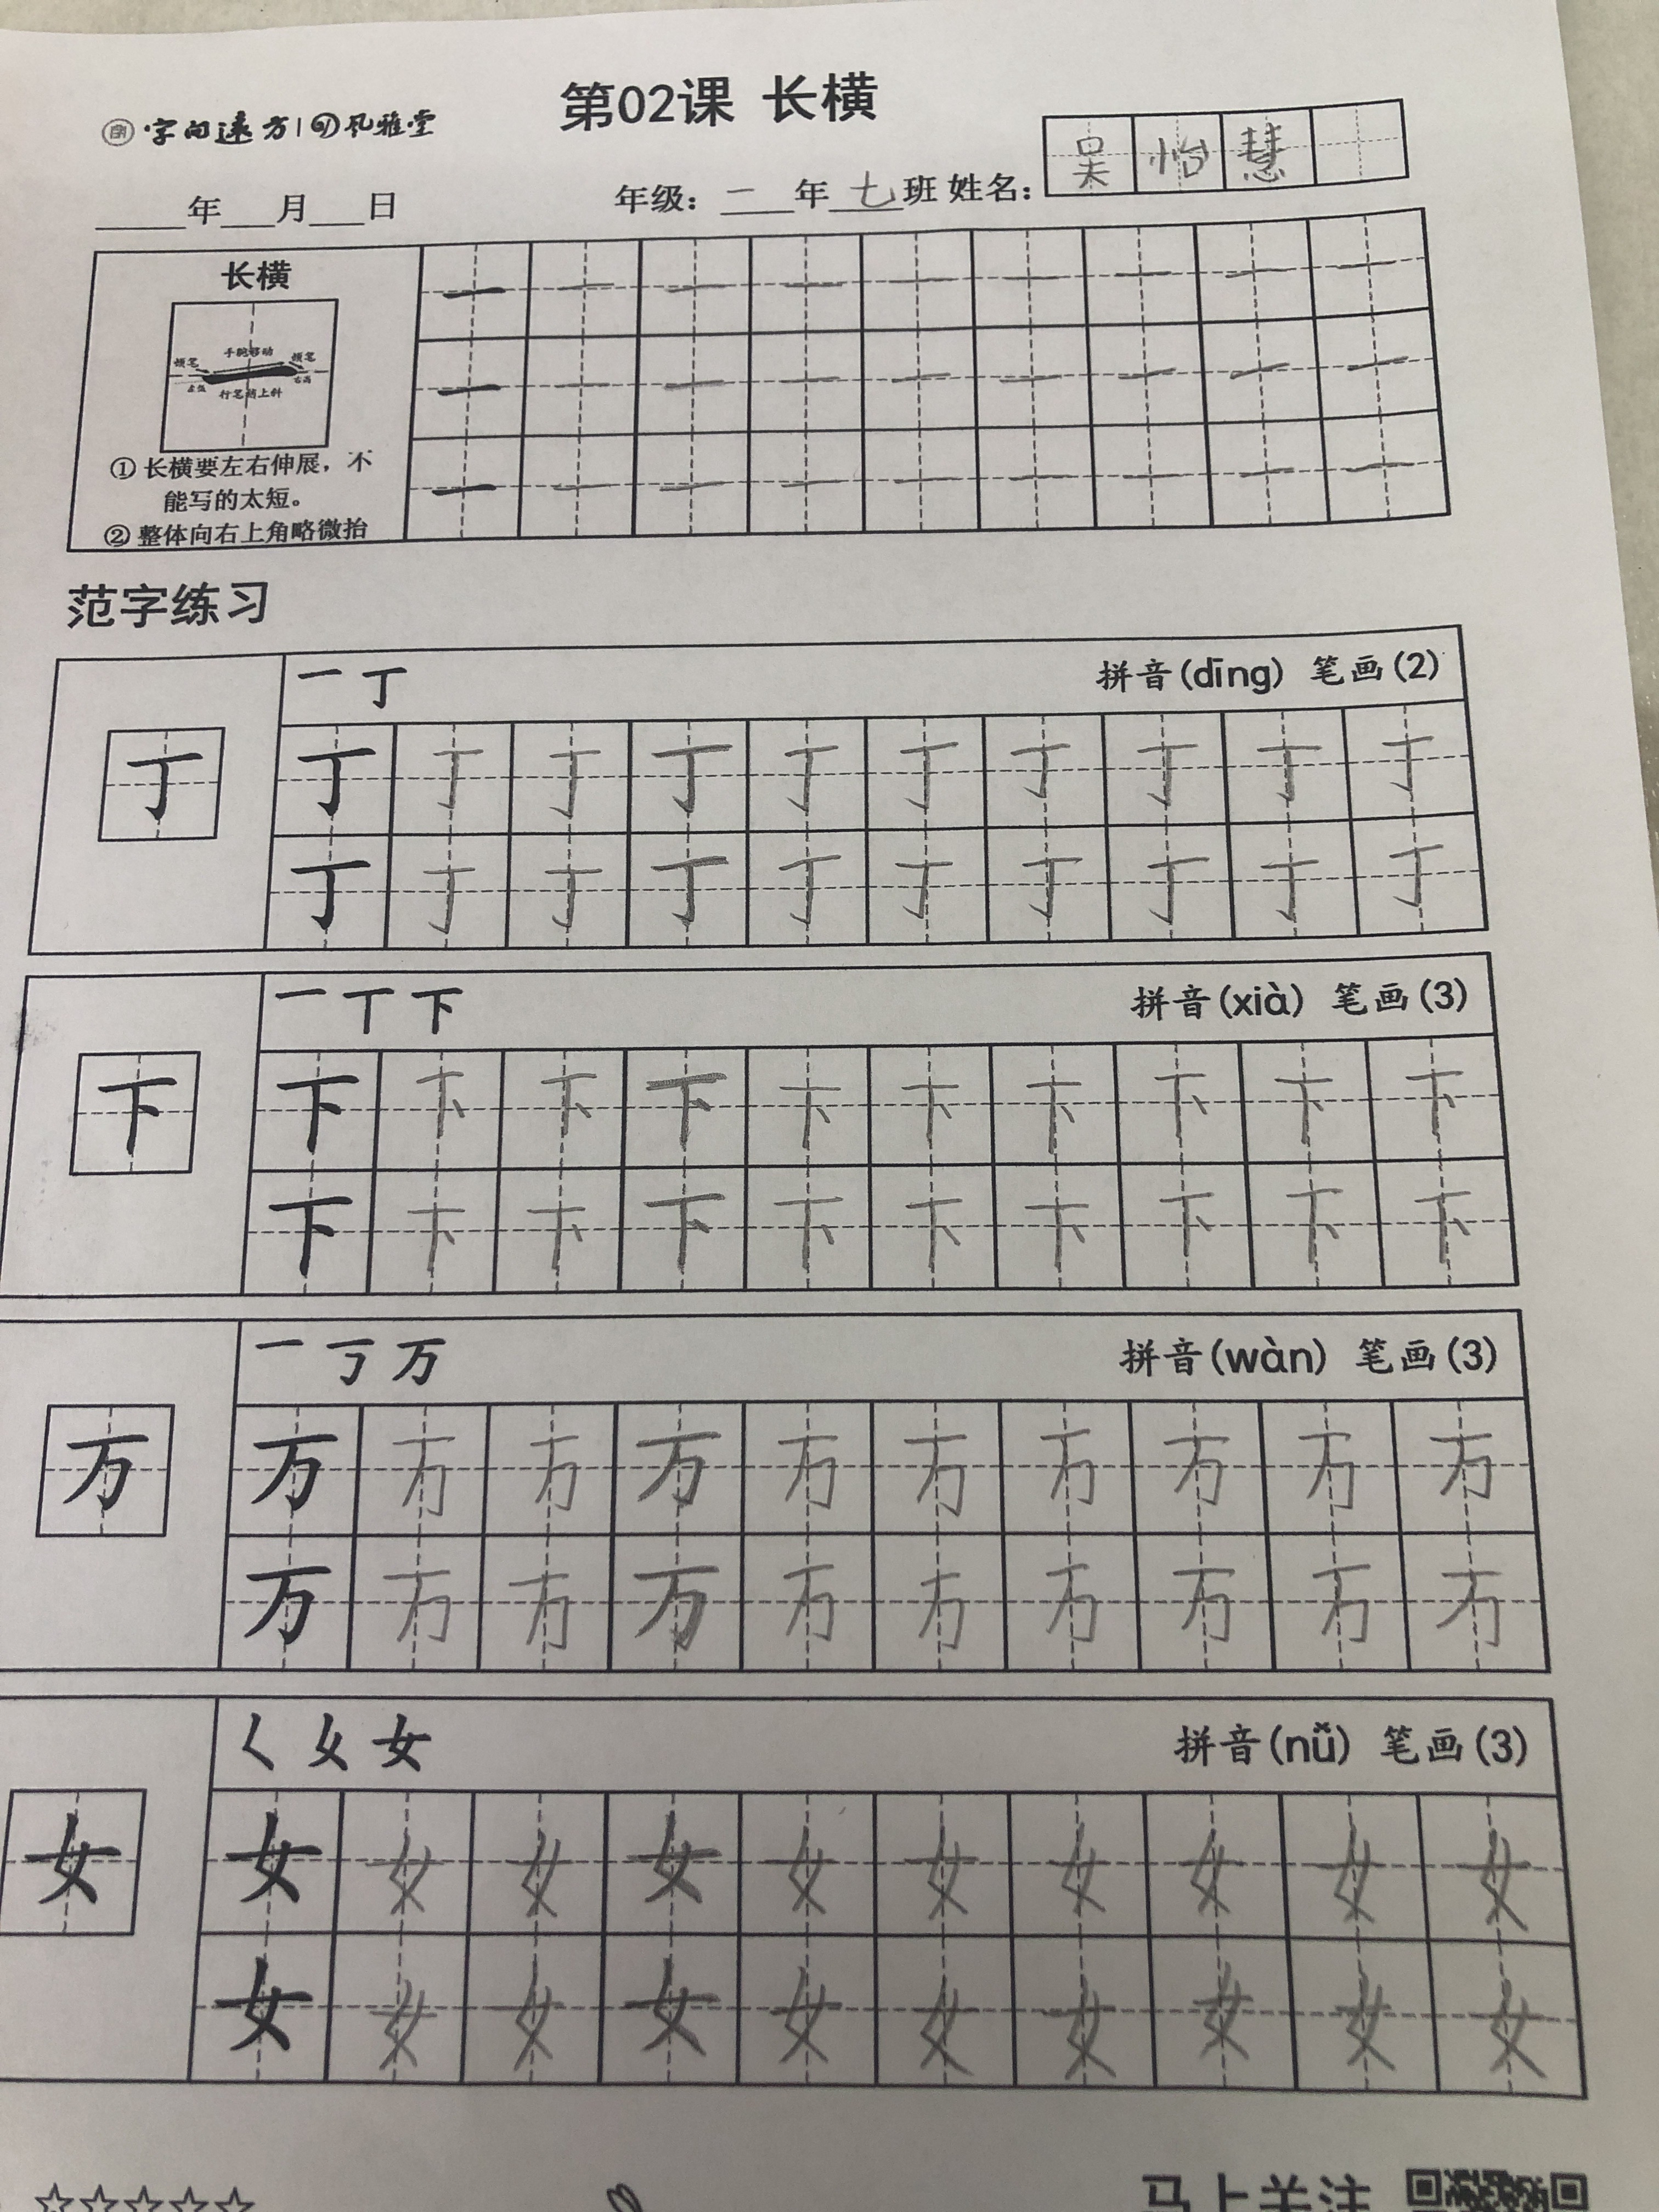 第02课 长横
字向远方 风雅堂
吴怡慧
年 月 日 年级：二年七班 姓名：
长横
顿笔 手腕移动 顿笔
左低 行笔稍上斜 右高
① 长横要左右伸展，不
能写的太短。
② 整体向右上角略微抬
一 一 一 一 一 一 一 一 一
一 一 一 一 一 一 一 一 一
一 一 一 一 一 一 一 一 一
范字练习
一 丁 拼音(dīng) 笔画(2)
丁
丁 丁 丁 丁 丁 丁 丁 丁 丁 丁
丁 丁 丁 丁 丁 丁 丁 丁 丁 丁
一 丅 下 拼音(xià) 笔画(3)
下
下 下 下 下 下 下 下 下 下 下
下 下 下 下 下 下 下 下 下 下
一 丂 万 拼音(wàn) 笔画(3)
万
万 万 万 万 万 万 万 万 万 万
万 万 万 万 万 万 万 万 万 万
𡿨 女 拼音(nǚ) 笔画(3)
女
女 女 女 女 女 女 女 女 女 女
女 女 女 女 女 女 女 女 女 女
☆☆☆☆☆ 马上关注